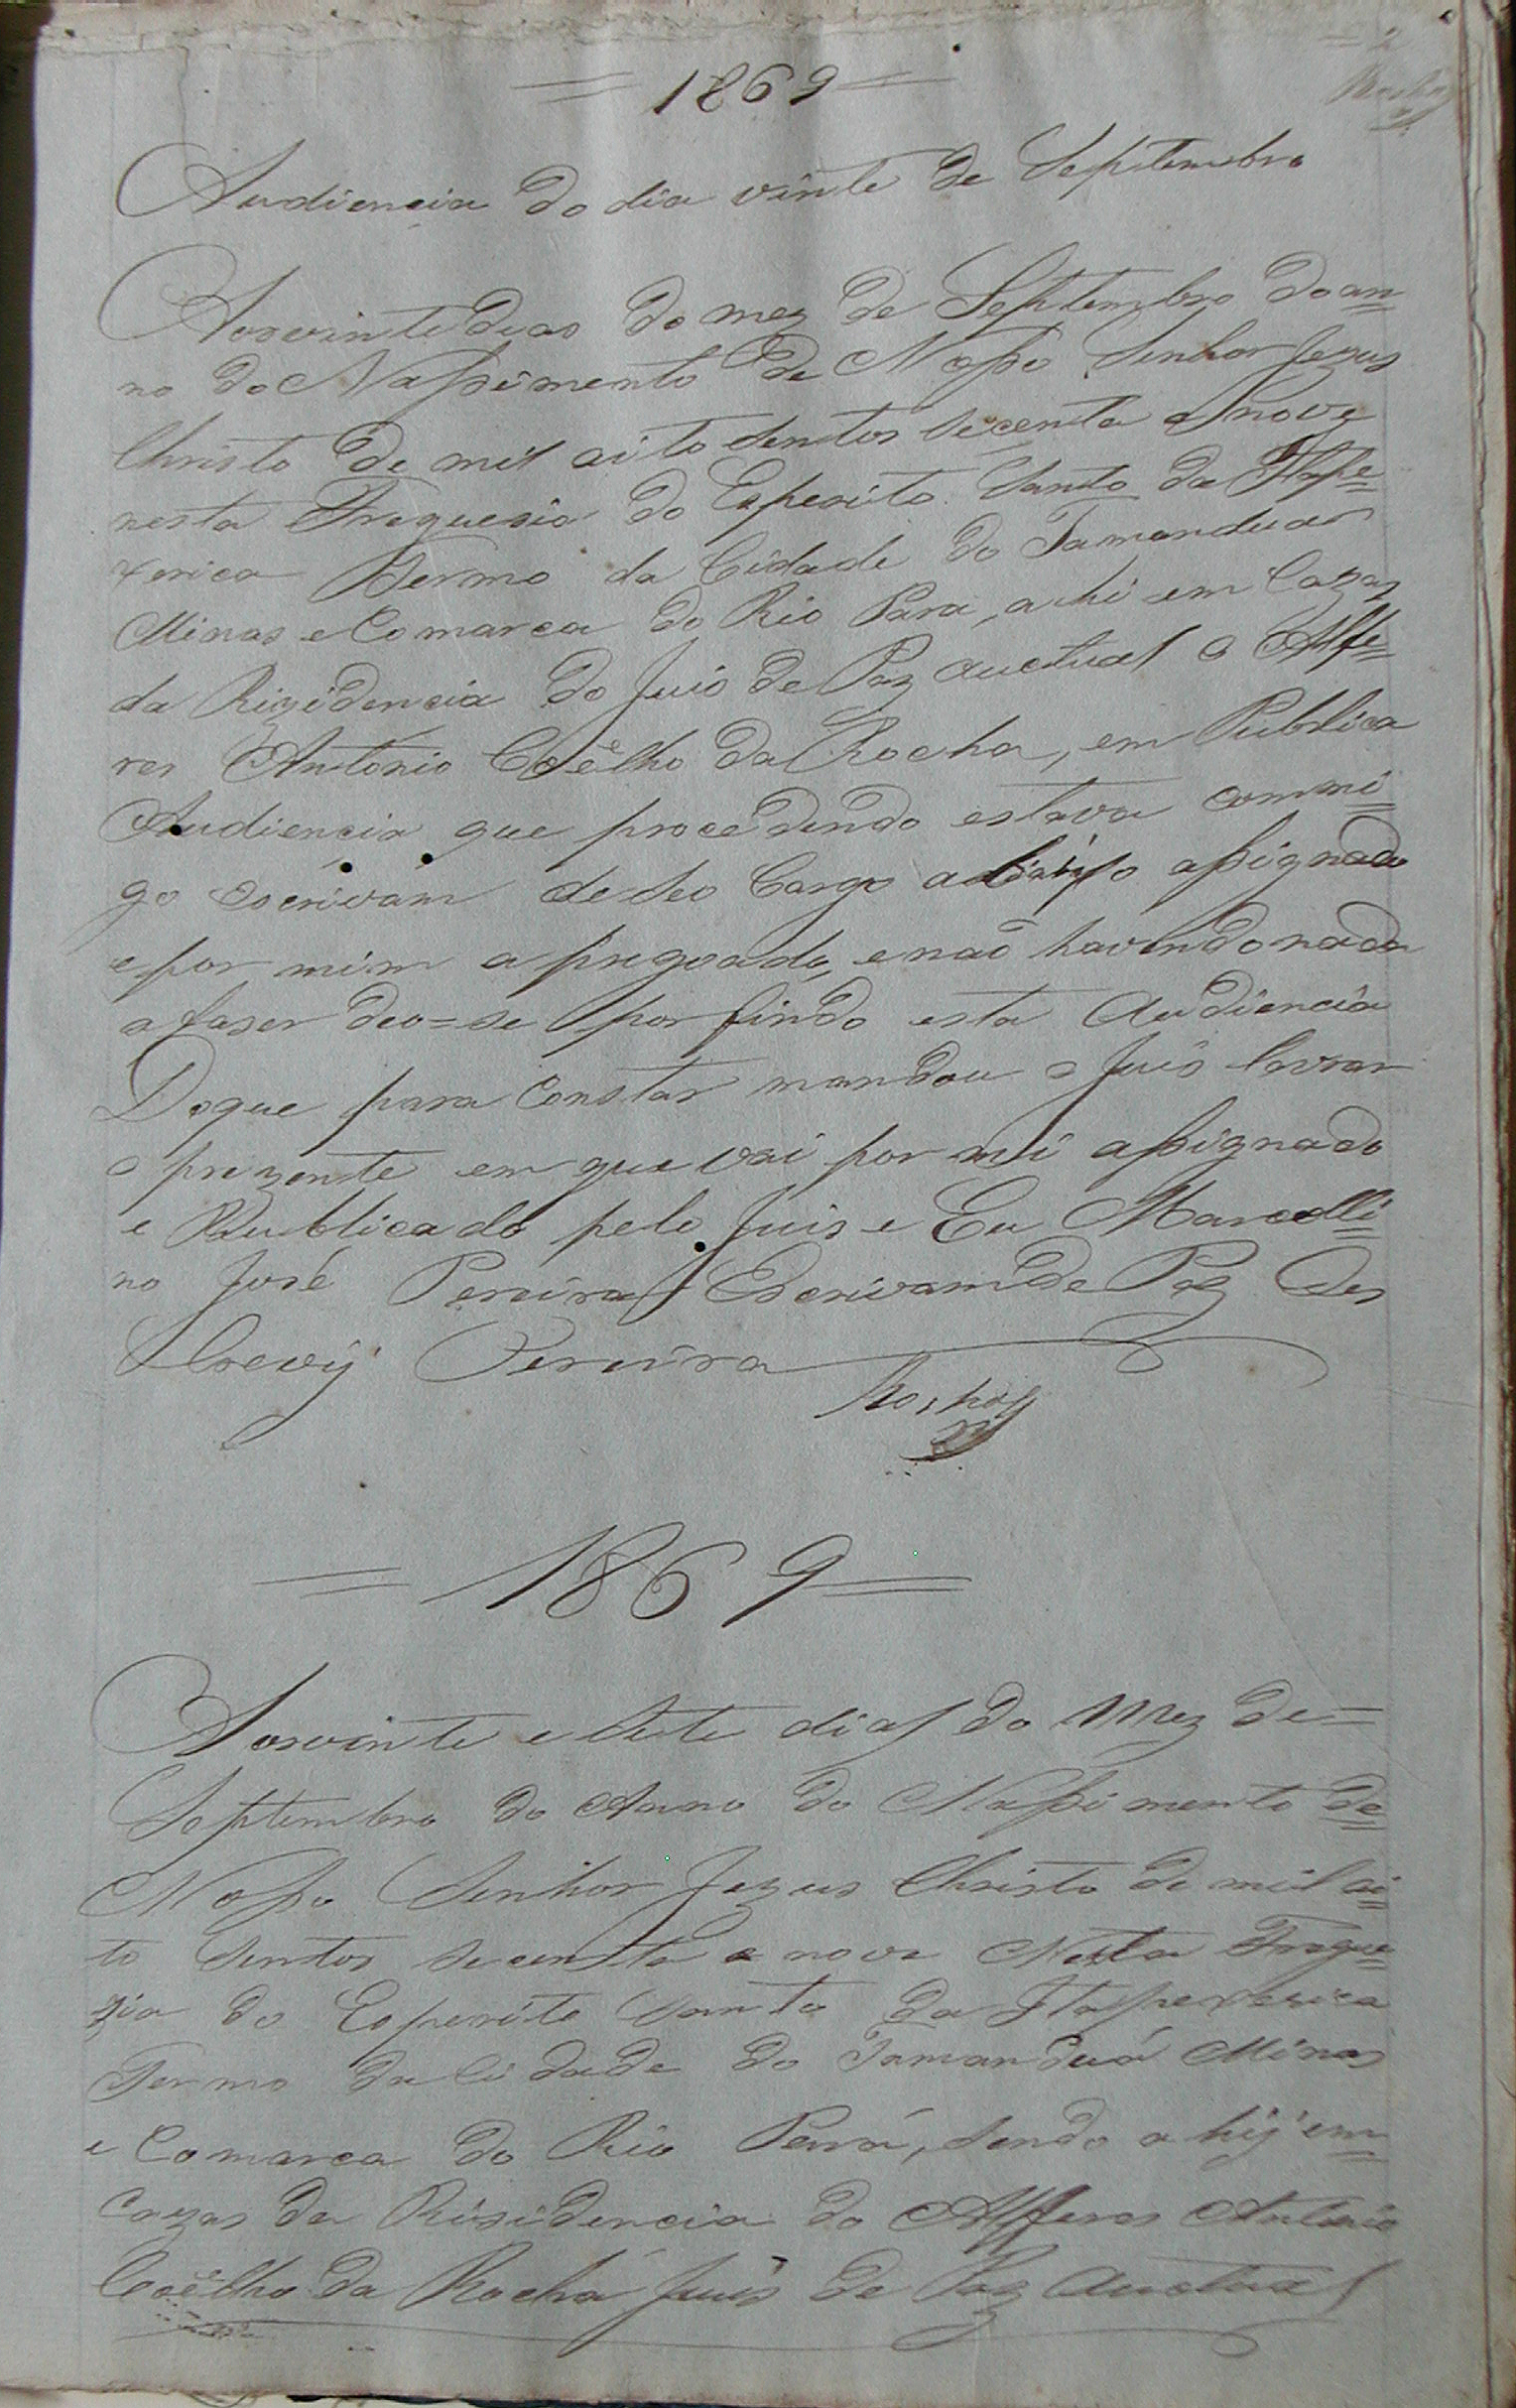 = 2
Rocha
= 1869 =
Audiencia do dia vinte de Septembro
Aosvinte dias do mez de Septembro do an=
no do Nassimento de Nosso Senhor Jezus
Christo de mil oito sentos secenta e nove
nesta Freguesia do Esperito Santo da Itape=
xerica Termo da Cidade do Tamandua
Minas e Comarca do Rio Para, ahi em Cazas
da Rizidencia do Juis de Paz auctual o Alfe=
res Antonio Coêlho da Rocha, em Publica
Audiencia que procedendo estava commi=
go escrivam de seo Cargo abaixo assignado
e por mim apregoada, e naõ havendo nada
a faser deo=se por findo esta Audiencia
Doque para Constar mandou o Juis lavrar
o prezente em que vai por mi assignado
e Rubricado pelo Juis e Eu Marcelli=
no José Pereira Escrivam de Paz Oes
Screvij Pereira
Rocha
= 1869 =
Aosvinte e Sete dias do Mez de=
Septembro do Anno do Nassimento de=
Nosso Senhor Jezus Christo de mil oi=
to sentos secenta e nove Nesta Fregue=
zia do Esperito Santo da Itapexerica
Termo da Cidade do Tamanduá Minas
e Comarca do Rio Pará, sendo ahij em=
Cazas da Risidencia do Alferes Antonio
Coêlho da Rocha Juis de Paz Auctual